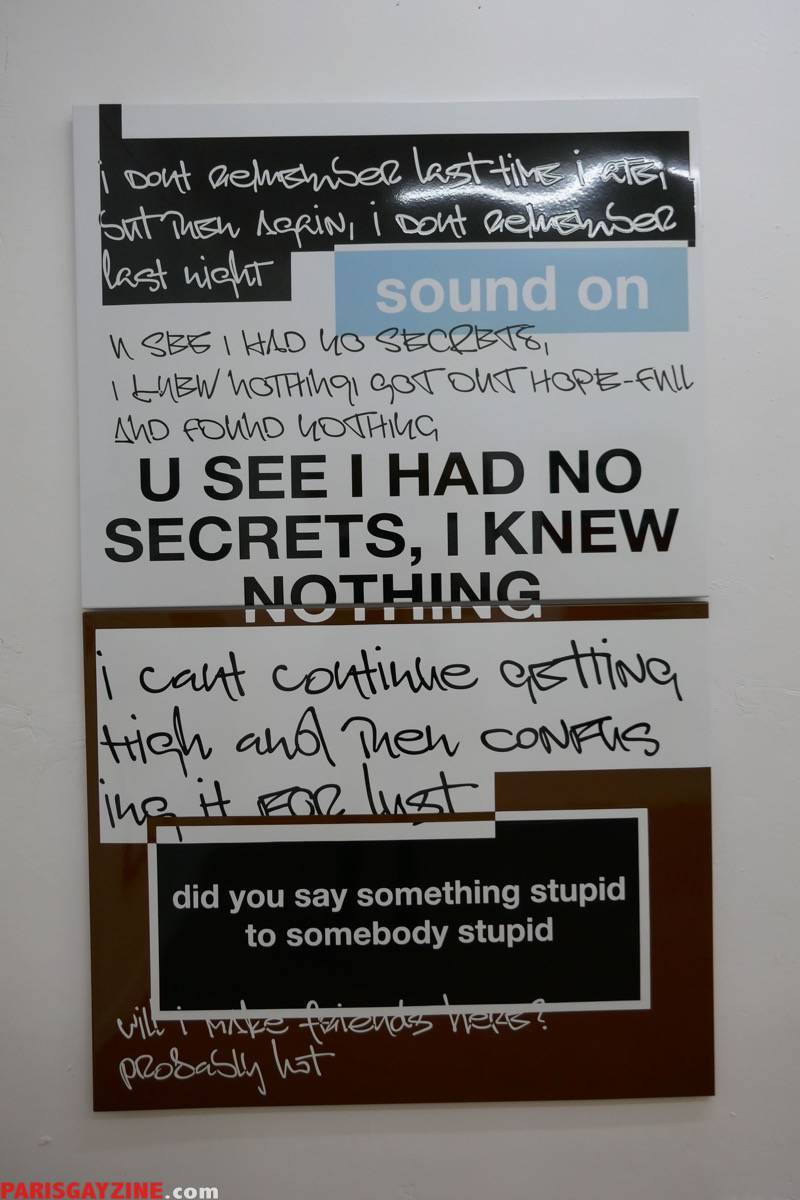 i dont remember last time i ate,
but then again, i dont remember
last night
sound on
u see i had no secrets,
i knew nothing, got out hope-full
and found nothing
U SEE I HAD NO
SECRETS, I KNEW
NOTHING
i cant continue getting
high and then confus
ing it for lust
did you say something stupid
to somebody stupid
will i make friends here?
probably not
PARISGAYZINE.com